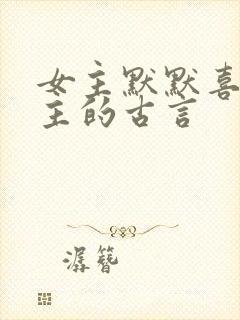 女主默默喜
主的古言
潺簪